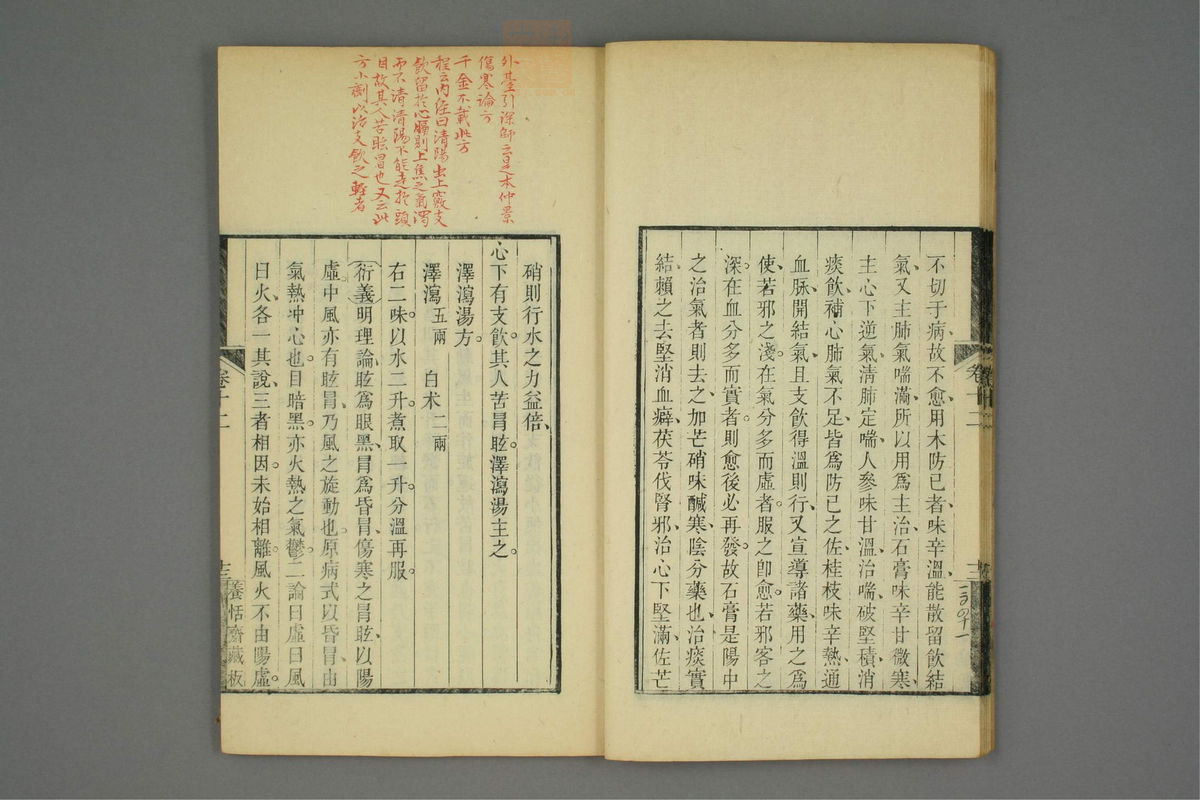 不切于病故不愈用木防已者味辛溫能散留飲結
氣又主肺氣喘滿所以用爲主治石膏味辛甘微寒
主心下逆氣淸肺定喘人參味甘溫治喘破堅積消
痰飮補心肺氣不足皆爲防已之佐桂枝味辛熱通
血脉開結氣且支飮得溫則行又宣導諸藥用之爲
使若邪之淺在氣分多而虛者服之卽愈若邪客之
深在血分多而實者則愈後必再發故石膏是陽中
之治氣者則去之加芒硝味鹹寒陰分藥也治痰實
結賴之去堅消血癖茯苓伐腎邪治心下堅滿佐芒
卷十二
外臺引深師云是本仲景
傷寒論方
千金不載此方
程云內經曰清陽出上竅支
飲留於心膈則上焦之氣濁
而不清清陽不能走於頭
目故其人苦眩冒也又云此
方小劑以治支飲之輕者
硝則行水之力益倍
心下有支飮其人苦冒眩澤瀉湯主之
澤瀉湯方
澤瀉五兩 白朮二兩
右二味以水二升煮取一升分溫再服
衍義明理論眩爲眼黑冒爲昏冒傷寒之冒眩以陽
虛中風亦有眩冒乃風之旋動也原病式以昏冒由
氣熱冲心也目暗黑亦火熱之氣鬱二論曰虛曰風
曰火各一其說三者相因未始相離風火不由陽虛
卷十二
十三
養恬齋藏板